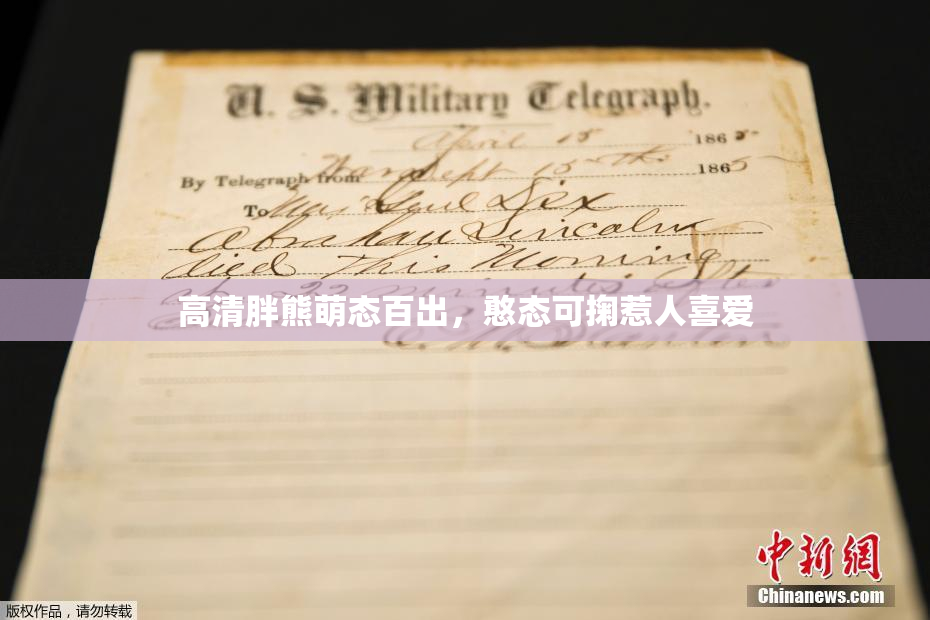 U. S. Military Telegraph.
April 15 1865
By Telegraph from War Dept 15th 1865
To Maj Genl Dix
Abraham Lincoln
died This Morning
22 minutes after
高清胖熊萌态百出，憨态可掬惹人喜爱
中新网
Chinanews.com
版权作品，请勿转载